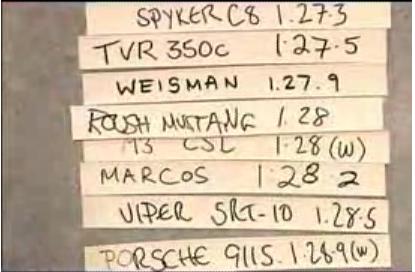 SPYKER C8 1.27.3
TVR 350c 1.27.5
WEISMAN 1.27.9
ROUSH MUSTANG 1.28
M3 CSL 1.28 (W)
MARCOS 1.28.2
VIPER SRT-10 1.28.5
PORSCHE 911S. 1.28.9(W)